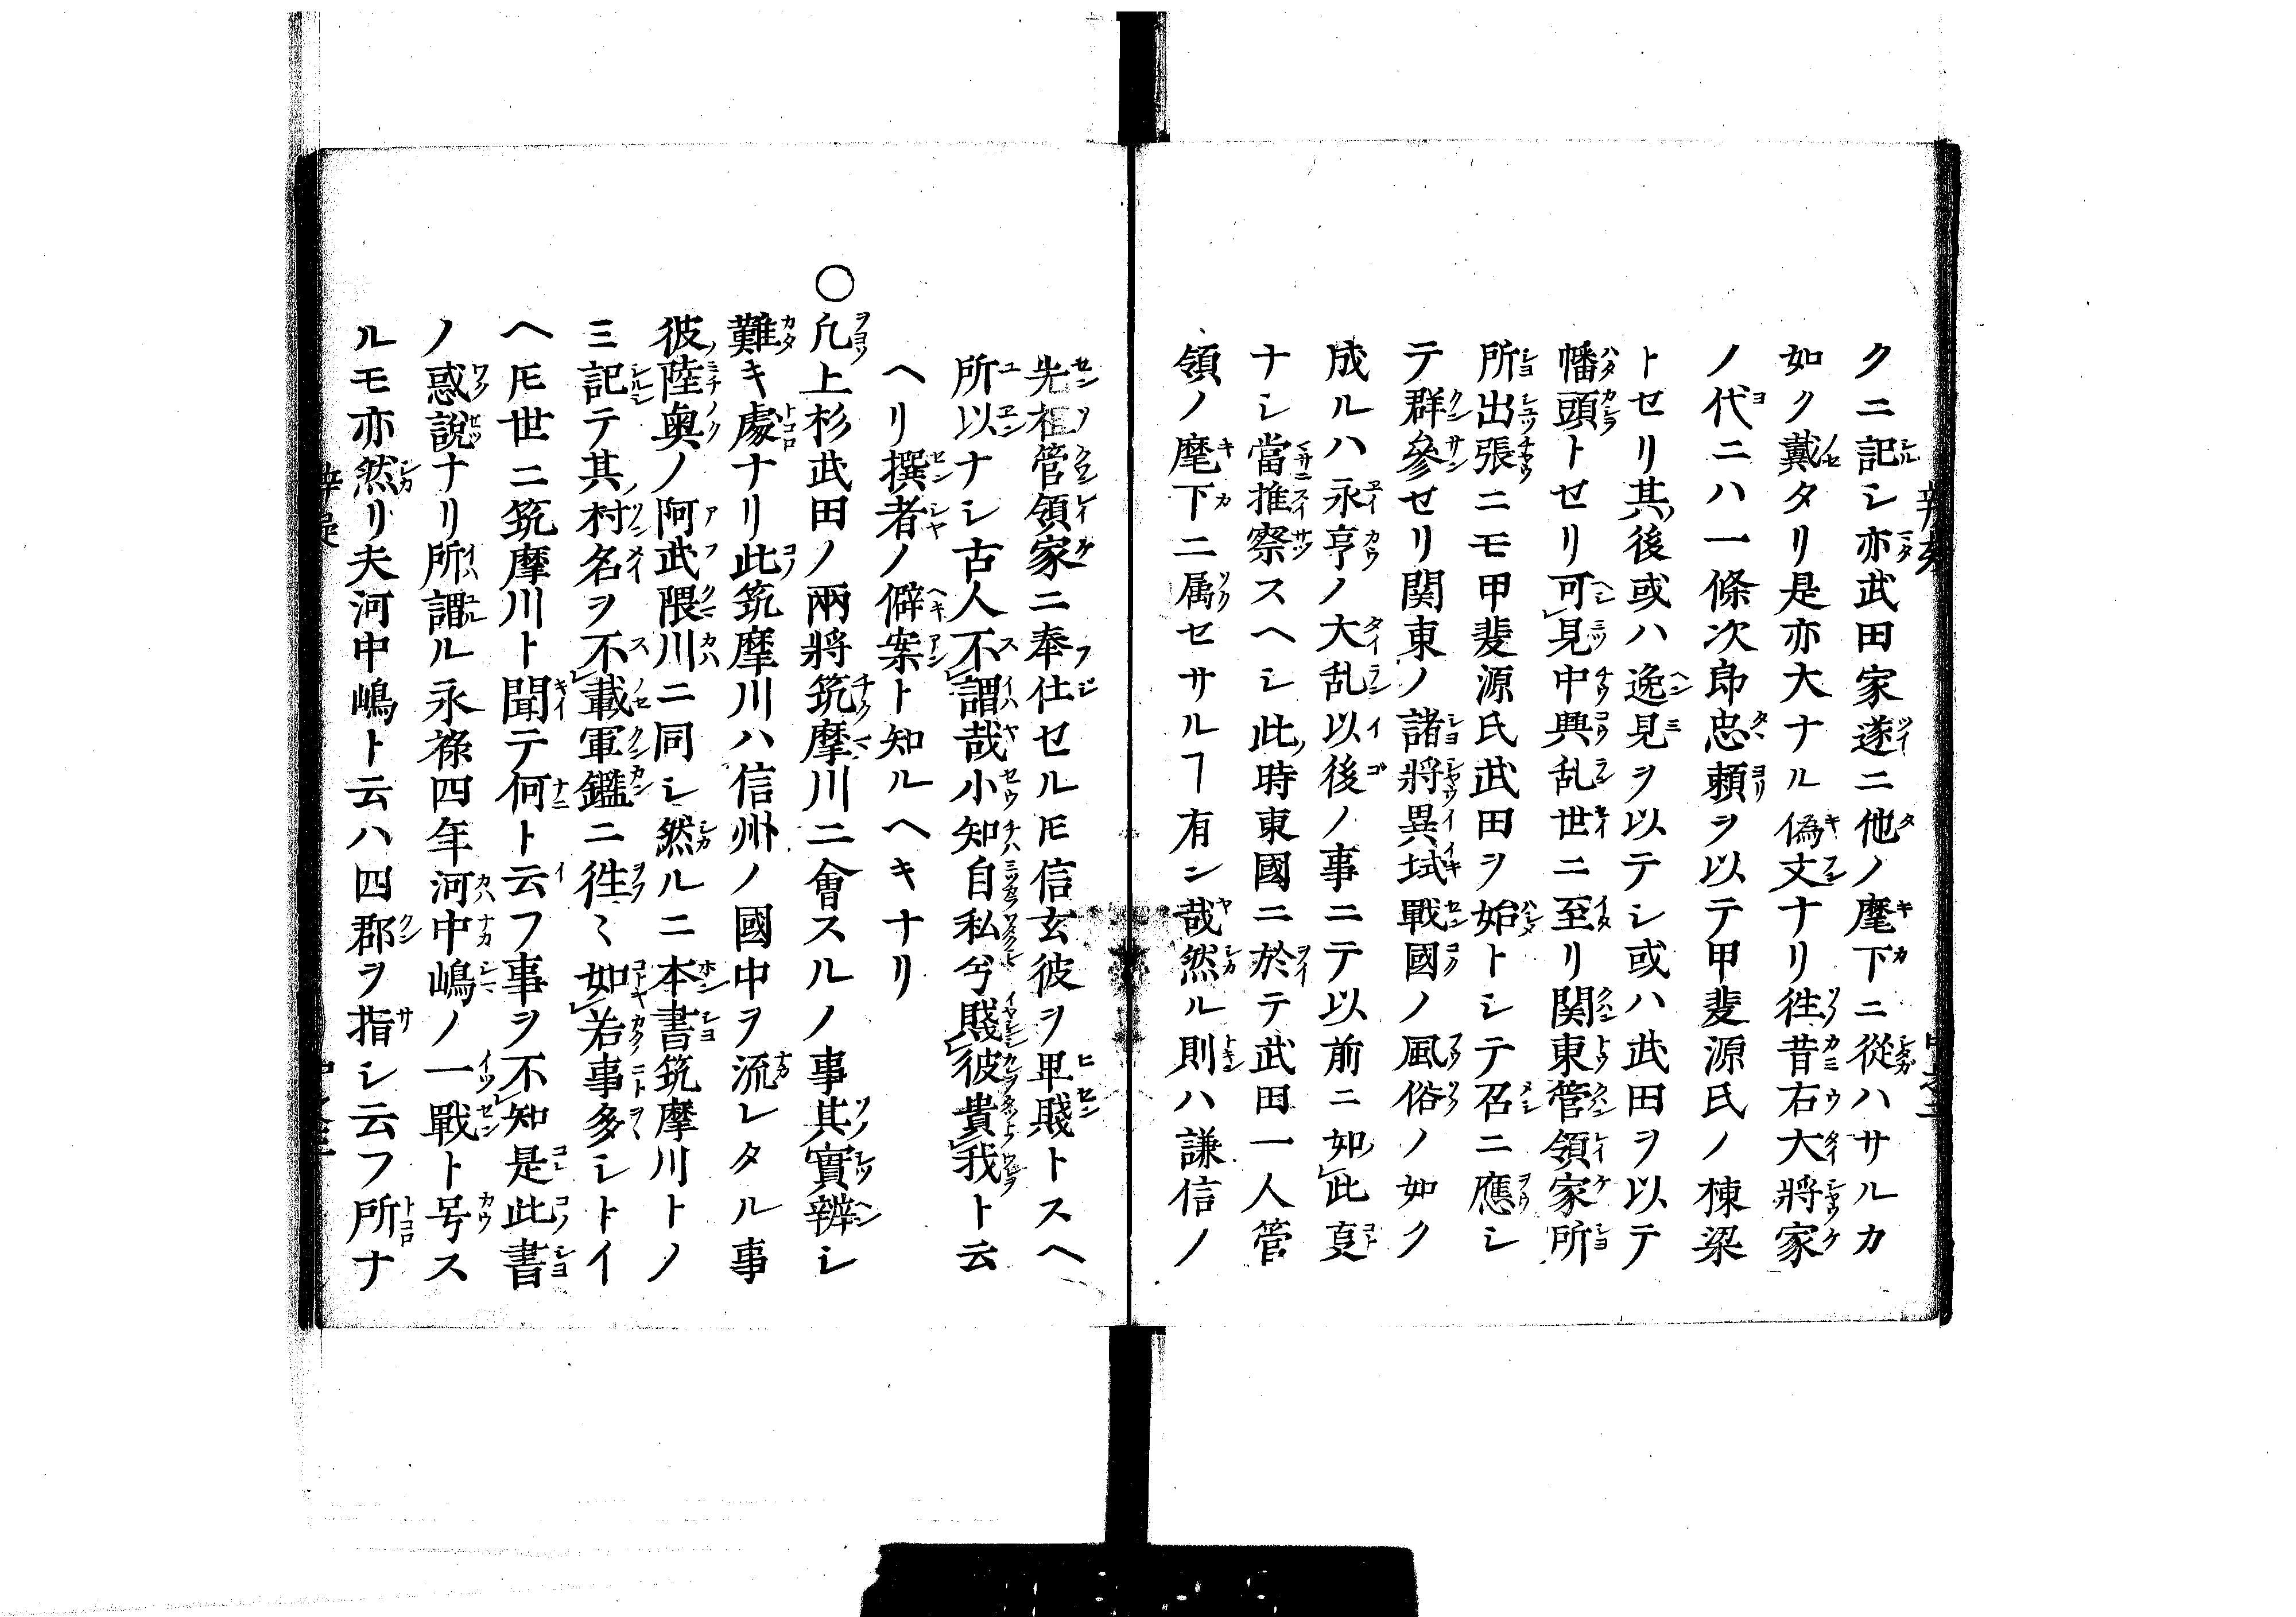 クニ記シ亦武田家遂ニ他ノ麾下ニ從ハサルカ
如ク戴タリ是亦大ナル僞文ナリ徃昔右大將家
ノ代ニハ一條次郎忠頼ヲ以テ甲斐源氏ノ棟梁
トセリ其後或ハ逸見ヲ以テシ或ハ武田ヲ以テ
幡頭トセリ可見中興乱世ニ至リ関東管領家所
所出張ニモ甲斐源氏武田ヲ始トシテ召ニ應シ
テ群參セリ関東ノ諸將異域戰國ノ風俗ノ如ク
成ルハ永亨ノ大乱以後ノ事ニテ以前ニ如此叓
ナシ當推察スヘシ此時東國ニ於テ武田一人管
領ノ麾下ニ属セサルヿ有ン哉然ル則ハ謙信ノ
先祖管領家ニ奉仕セルㇳモ信玄彼ヲ卑賤トスヘ
所以ナシ古人不謂哉小知自私兮賤彼貴我ト云
ヘリ撰者ノ僻案ト知ルヘキナリ
〇凢上杉武田ノ兩將筑摩川ニ會スルノ事其實辨シ
難キ處ナリ此筑摩川ハ信州ノ國中ヲ流レタル事
彼陸奥ノ阿武隈川ニ同シ然ルニ本書筑摩川トノ
ミ記テ其村名ヲ不載軍鑑ニ徃〻如若事多シトイ
ヘㇳモ世ニ筑摩川ト聞テ何ト云フ事ヲ不知是此書
ノ惑說ナリ所謂ル永祿四年河中嶋ノ一戰ト号ス
ルモ亦然リ夫河中嶋ト云ハ四郡ヲ指シ云フ所ナ